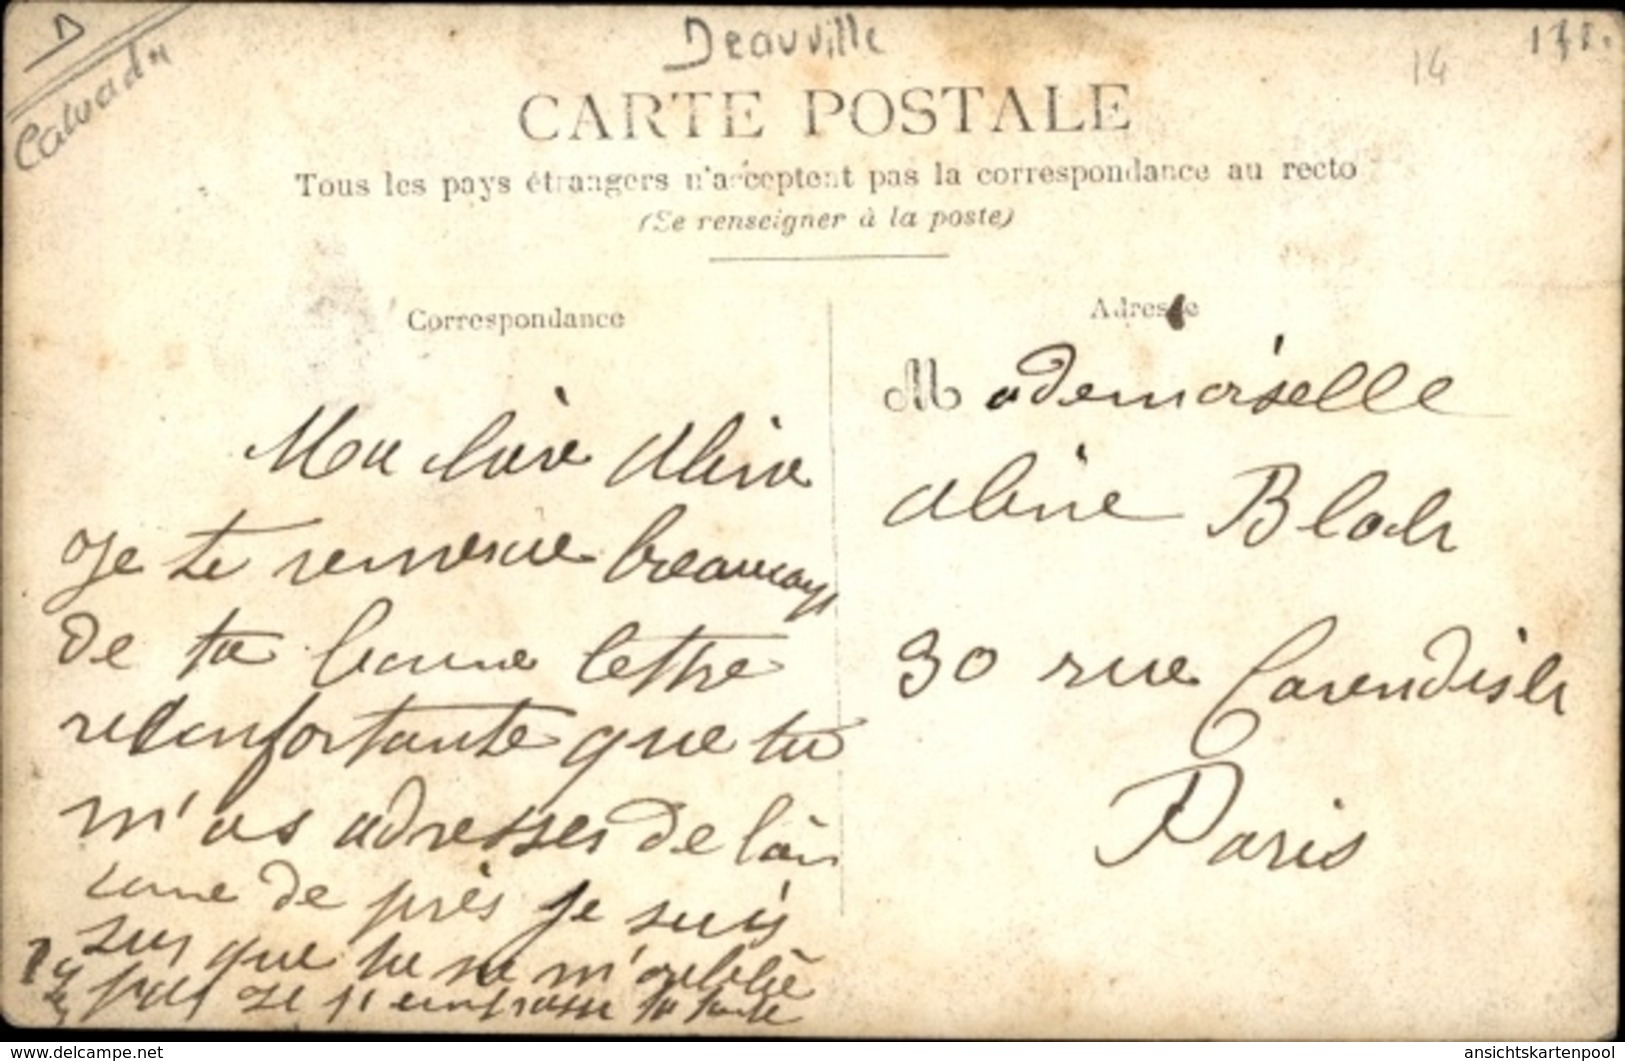 D
Calvados
Deauville
14
CARTE POSTALE
Tous les pays étrangers n'acceptent pas la correspondance au recto
(Se renseigner à la poste)
Correspondance
Ma chère Aline
Je te remercie beaucoup
de ta bonne lettre
réconfortante que tu
m'as adressée de loin
comme de près je suis
sur que tu ne m'oublie
pas Je t'embrasse ta tante
Adresse
Mademoiselle
Aline Bloch
30 rue Cavendish
Paris
www.delcampe.net
ansichtskartenpool